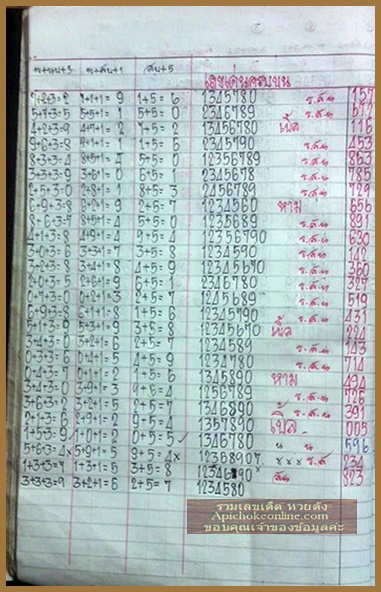 น+บน+3 น+สบ+1 สบ+5 เลขเด่นครบบน
5+2+3=2 7+1+1=9 1+5=6 1345780 ร.ส.น 157
5+7+3=5 5+5+1=1 5+5=0 2346789 ร.ส.น 672
4+2+3=9 4+7+1=2 7+5=2 13456780 เบิ้ล 116
9+6+3=8 9+1+1=1 1+5=6 2345790 ร.ส.น 453
8+3+3=4 8+5+1=4 5+5=0 12356789 ร.ส.น 863
3+3+3=9 3+6+1=0 6+5=1 2345678 ร.ส.น 785
2+5+3=0 2+8+1=1 8+5=3 2456789 ร.ส.น 729
6+9+3=8 6+2+1=9 2+5=7 1234560 หาม 656
8+6+3=7 8+5+1=4 5+5=0 1235689 ร.ส.น 891
4+1+3=8 4+9+1=4 9+5=4 12356790 ร.ส.น 630
3+0+3=6 3+3+1=7 3+5=8 1234590 ร.ส.น 142
3+2+3=8 3+4+1=8 4+5=9 12345670 ร.ส.น 360
2+0+3=5 2+6+1=9 6+5=1 2346780 ร.ส.น 327
1+0+3=7 0+2+1=3 2+5=7 1245689 ร.ส.น 519
6+9+3=8 6+1+1=8 1+5=6 12345790 ร.ส.น 431
5+1+3=9 5+3+1=9 3+5=8 12345670 เบิ้ล 224
3+4+3=0 3+2+1=6 2+5=7 1234589 ร.ส.น 143
0+3+3=6 0+4+1=5 4+5=9 1234780 ร.ส.น 714
0+4+3=7 0+1+1=2 1+5=6 1345890 หาม 494
3+4+3=0 3+9+1=3 9+5=4 1256789 ร.ส.น 726
3+6+3=2 3+2+1=6 2+5=7 1346890 ร.ส.น 391
2+1+3=6 2+9+1=2 9+5=4 1357890 เบิ้ล 005
1+5+3=9 1+0+1=2 0+5=5 1346780 น น 596
5+6+3=4x 5+9+1=5 9+5=4x 12368907 xxx ร.ส 234
1+3+3=7 1+3+1=5 3+5=8 ส.น 823
3+3+3=9 3+2+1=6 2+5=7 1234580
รวมเลขเด็ด หวยดัง
Apichokeonline.com
ขอบคุณเจ้าของข้อมูลค่ะ